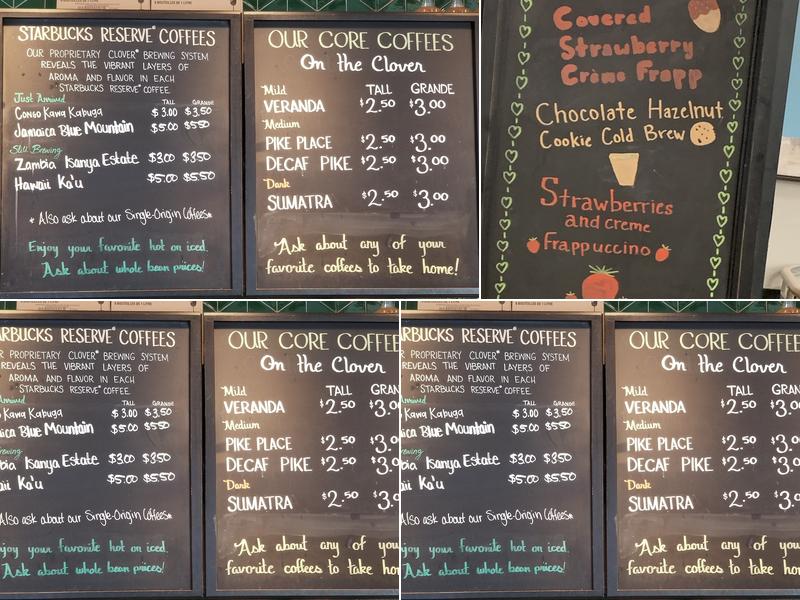 STARBUCKS RESERVE® COFFEES
OUR PROPRIETARY CLOVER® BREWING SYSTEM
REVEALS THE VIBRANT LAYERS OF
AROMA AND FLAVOR IN EACH
STARBUCKS RESERVE® COFFEE.
Just Arrived TALL GRANDE
Congo Kawa Kabuga $3.00 $3.50
Jamaica Blue Mountain $5.00 $5.50
Still Brewing
Zambia Isanya Estate $3.00 $3.50
Hawaii Ka'u $5.00 $5.50
* Also ask about our Single-Origin Coffees*
Enjoy your favorite hot on iced.
Ask about whole bean prices!
OUR CORE COFFEES
On the Clover
Mild TALL GRANDE
VERANDA $2.50 $3.00
Medium
PIKE PLACE $2.50 $3.00
DECAF PIKE $2.50 $3.00
Dark
SUMATRA $2.50 $3.00
Ask about any of your
favorite coffees to take home!
Covered
Strawberry
Crème Frapp
Chocolate Hazelnut
Cookie Cold Brew
Strawberries
and creme
Frappuccino
ARBUCKS RESERVE® COFFEES
R PROPRIETARY CLOVER® BREWING SYSTEM
REVEALS THE VIBRANT LAYERS OF
AROMA AND FLAVOR IN EACH
STARBUCKS RESERVE® COFFEE.
Arrived TALL GRANDE
o Kawa Kabuga $3.00 $3.50
ica Blue Mountain $5.00 $5.50
rewing
bia Isanya Estate $3.00 $3.50
aii Ka'u $5.00 $5.50
Also ask about our Single-Origin Coffees*
njoy your favorite hot on iced.
Ask about whole bean prices!
OUR CORE COFFE
On the Clover
Mild TALL GRAN
VERANDA $2.50 $3.0
Medium
PIKE PLACE $2.50 $3.0
DECAF PIKE $2.50 $3.0
Dark
SUMATRA $2.50 $3.0
Ask about any of you
favorite coffees to take hom
RBUCKS RESERVE® COFFEES
R PROPRIETARY CLOVER® BREWING SYSTEM
REVEALS THE VIBRANT LAYERS OF
AROMA AND FLAVOR IN EACH
STARBUCKS RESERVE® COFFEE.
Arrived TALL GRANDE
o Kawa Kabuga $3.00 $3.50
ica Blue Mountain $5.00 $5.50
rewing
bia Isanya Estate $3.00 $3.50
aii Ka'u $5.00 $5.50
Also ask about our Single-Origin Coffees*
njoy your favorite hot on iced.
Ask about whole bean prices!
OUR CORE COFFEE
On the Clover
Mild TALL GRAN
VERANDA $2.50 $3.0
Medium
PIKE PLACE $2.50 $3.0
DECAF PIKE $2.50 $3.0
Dark
SUMATRA $2.50 $3.0
Ask about any of you
favorite coffees to take hom